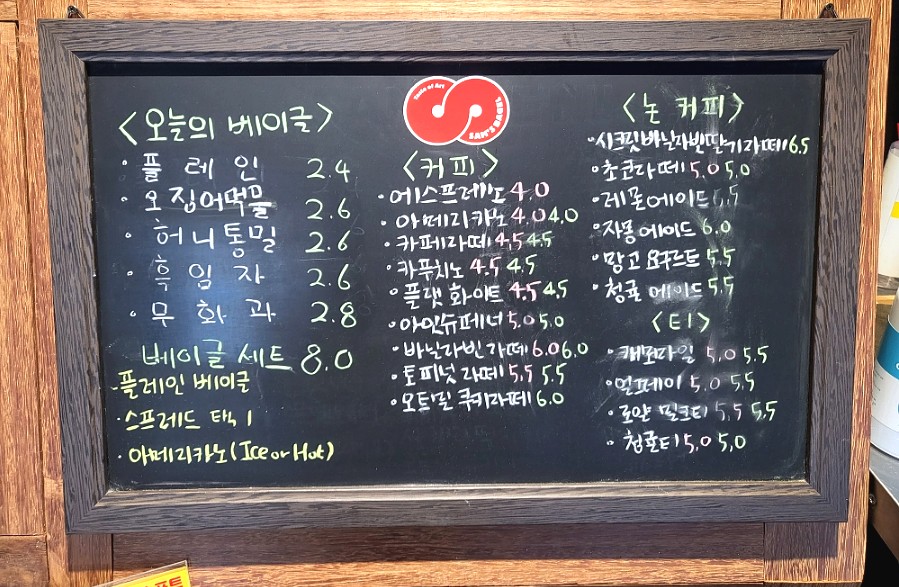 <오늘의 베이글>
· 플레인 2.4
· 오징어먹물 2.6
· 허니통밀 2.6
· 흑임자 2.6
· 무화과 2.8
베이글 세트 8.0
· 플레인 베이글
· 스프레드 택 1
· 아메리카노 (Ice or Hot)
Taste of Art
SAM'S BAGEL
<커피>
· 에스프레쏘 4.0
· 아메리카노 4.0 4.0
· 카페라떼 4.5 4.5
· 카푸치노 4.5 4.5
· 플랫 화이트 4.5 4.5
· 아인슈페너 5.0 5.0
· 바닐라빈 라떼 6.0 6.0
· 토피넛 라떼 5.5 5.5
· 오트밀 쿠키라떼 6.0
<논 커피>
· 시크릿바닐라빈딸기라떼 6.5
· 초코라떼 5.0 5.0
· 레몬에이드
· 자몽에이드 6.0
· 망고 요구르트 5.5
· 청귤 에이드 5.5
<티>
· 캐모마일 5.0 5.5
· 얼그레이 5.0 5.5
· 로얄 밀크티 5.5 5.5
· 청귤티 5.0 5.0